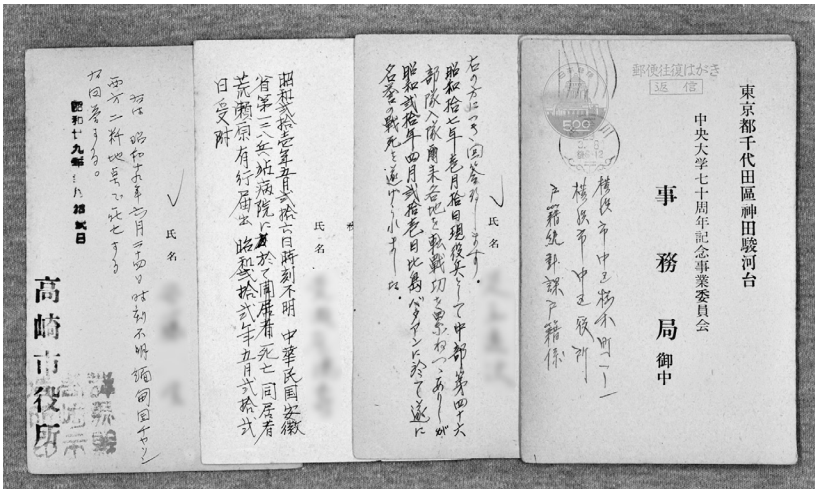 郵便往復はがき
返信
東京都千代田區神田駿河台
中央大学七十周年記念事業委員会
事務局 御中
横浜市中区役所
戸籍統計課戸籍係
右の方につき回答形します。
昭和拾七年壱月拾日現役兵として中部第四十六
部隊入隊爾来各地を転戦功を累ねつゝありしが
昭和弐拾年四月弐拾壱日比島バタアンに於て遂に
名誉の戦死を遂げられました。
氏名
昭和弐拾壱年五月弐拾六日時刻不明 中華民国安徽
省第一三八兵站病院に於て同居者死亡 同居者
荒瀬宗有行届出 昭和弐拾弐年五月弐拾弐
日受附
氏名
右は 昭和十九年六月二十四日時刻不明緬甸国チャツン
西方二粁地点で死亡する
右回答する。
氏名
高崎市役所